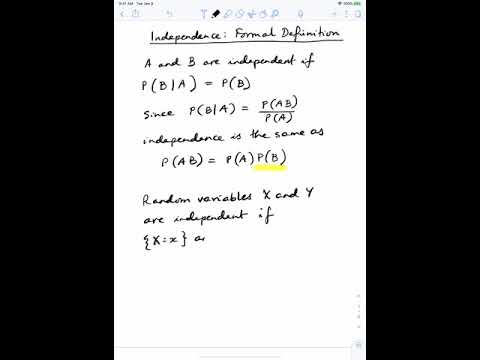 9:41 AM Tue Jan 9
Independence: Formal Definition
A and B are independent if
P(B|A) = P(B)
Since P(B|A) = P(AB)/P(A)
independence is the same as
P(AB) = P(A)P(B)
Random variables X and Y
are independent if
{X=x} a